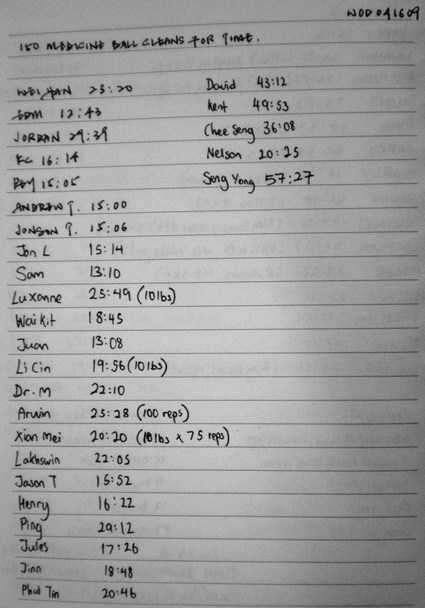 WOD 041609
150 MEDICINE BALL CLEANS FOR TIME.
WEI YAN 23:20
12:43
JORDAN 29:39
KC 16:14
15:05
ANDREW T. 15:00
JONSON T. 15:06
Jon L 15:14
Sam 13:10
Luxanne 25:49 (10lbs)
Wai Kit 18:45
Juan 13:08
Li Cin 19:56 (10lbs)
Dr. M 22:10
Arwin 25:28 (100 reps)
Xian Mei 20:20 (10lbs x 75 reps)
Lakhswin 22:05
Jason T 15:52
Henry 16:22
Ping 29:12
Jules 17:26
Jinn 18:48
Phui Tin 20:46
David 43:12
Kent 49:53
Chee Seng 36:08
Nelson 20:25
Seng Yong 57:27